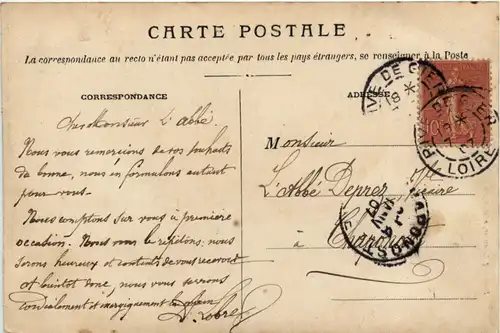 CARTE POSTALE
La correspondance au recto n'étant pas acceptée par tous les pays étrangers, se renseigner à la Poste
CORRESPONDANCE
ADRESSE
Cher Monsieur L'abbé.
Nous vous remercions de vos souhaits
de bonne, nous en formulons autant
pour vous.
Nous comptons sur vous à première
occasion. Nous vous le répétons, nous
serons heureux et contents de vous recevoir
et bientôt donc, nous vous serrons
cordialement et énergiquement la main
Monsieur
L'Abbé Deprez
à
RIVE DE GIER
LOIRE
CHAPONOST